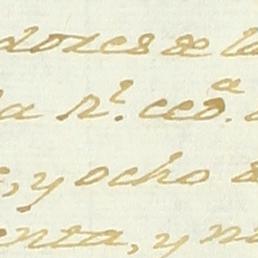 dores de la
a n.º ced.ª
, y ocho
enta, y n